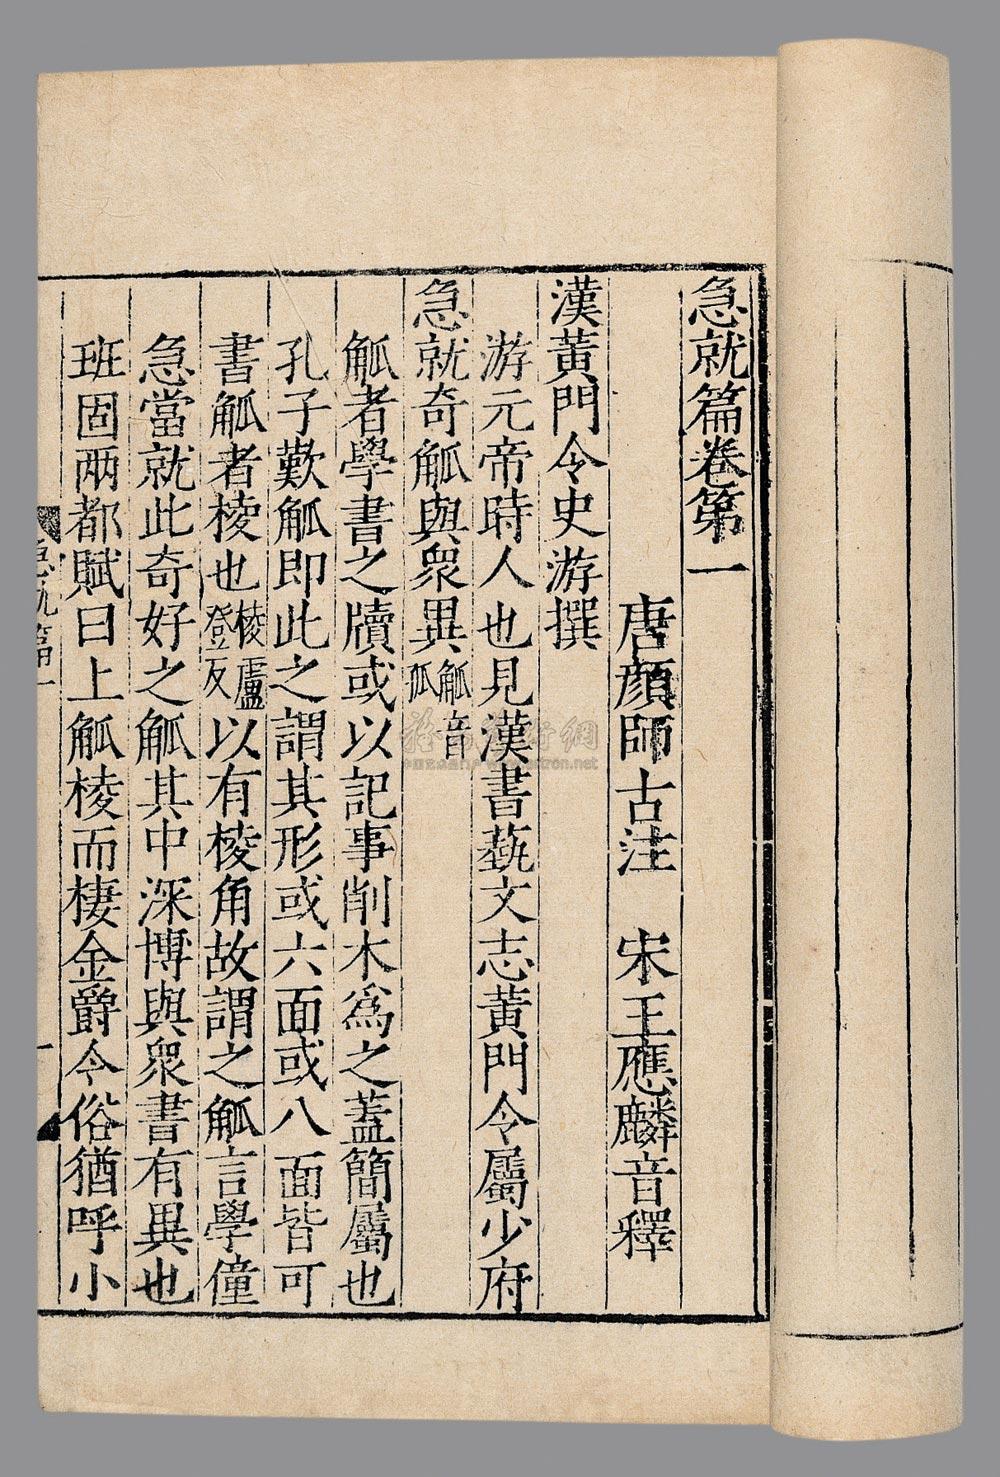 急就篇卷第一
唐顔師古注　宋王應麟音釋
漢黃門令史游撰
游元帝時人也見漢書藝文志黃門令屬少府
急就奇觚與衆異觚音瓜
觚者學書之牘或以記事削木爲之蓋簡屬也
孔子歎觚即此之謂其形或六面或八面皆可
書觚者棱也棱盧登反以有棱角故謂之觚言學僮
急當就此奇好之觚其中深博與衆書有異也
班固兩都賦曰上觚棱而棲金爵今俗猶呼小
急就篇一
一